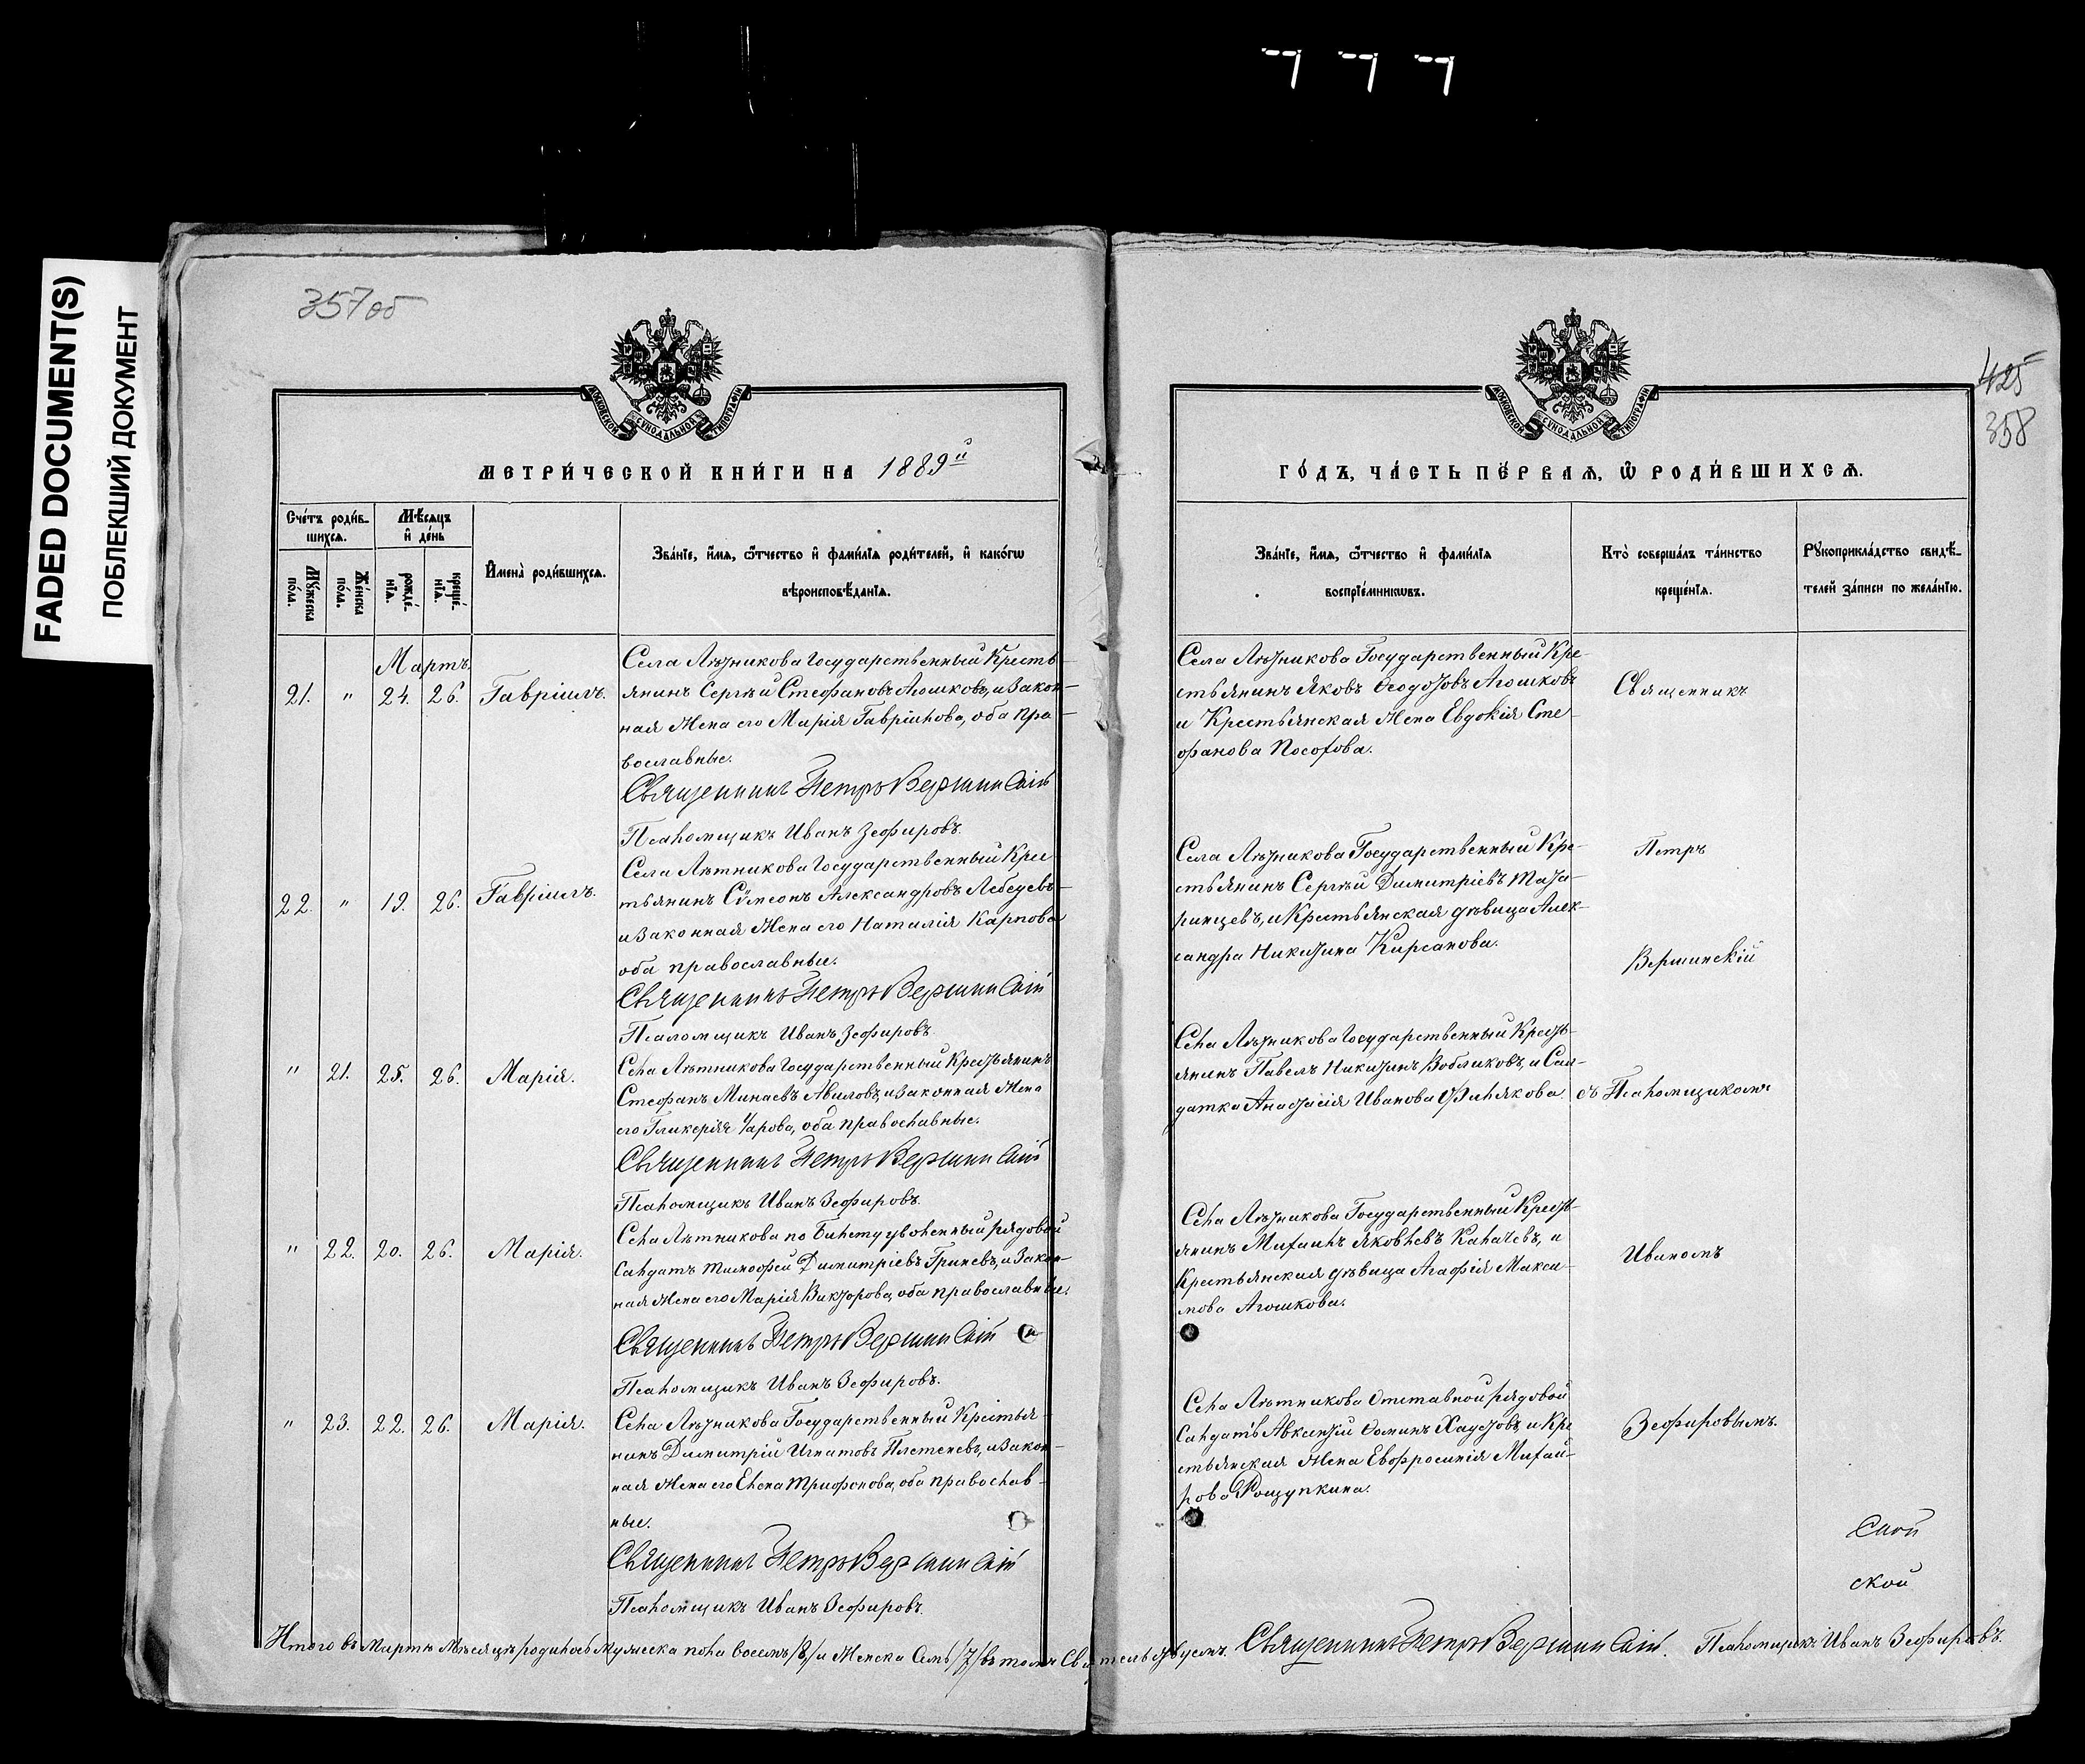 777
FADED DOCUMENT(S)
ПОБЛЕКШИЙ ДОКУМЕНТ
357 об
МОСКОВСКОЙ СѴНОДАЛЬНОЙ ТИПОГРАФІИ
МЕТРИ́ЧЕСКОЙ КНИ́ГИ НА 1889й
Сче́тъ роди́в-
шихсѧ.
Мѣ́сѧцъ
и҆ де́нь
И҆мена̀ роди́вшихсѧ.
Зва́нїе, и҆́мѧ, ѻ҆́тчество и҆ фами́лїѧ роди́телей, и҆ како́гѡ
вѣроисповѣ́данїѧ.
Мꙋ́жеска
по́ла.
Же́нска
по́ла.
рожде́-
нїѧ.
креще́-
нїѧ.
Мартъ
21. " 24. 26. Гавріилъ.
Села Лѣтникова Государственный Кресть-
янинъ Сергѣй Стефановъ Агошковъ, и закон-
ная жена его Марія Гавріилова, оба пра-
вославные.
Священникъ Петръ Вершинскій
Псаломщикъ Иванъ Зефировъ.
22. " 19. 26. Гавріилъ.
Села Лѣтникова Государственный Крес-
тьянинъ Сѵмеонъ Александровъ Лебедевъ
и законная жена его Наталія Карпова
оба православные.
Священникъ Петръ Вершинскій
Псаломщикъ Иванъ Зефировъ.
" 21. 25. 26. Марія.
Села Лѣтникова Государственный Крестьянинъ
Стефанъ Минаевъ Авиловъ, и законная жена
его Гликерія Уарова, оба православные.
Священникъ Петръ Вершинскій
Псаломщикъ Иванъ Зефировъ.
" 22. 20. 26. Марія.
Села Лѣтникова по билету уволенный рядовой
Салдатъ Тимофей Димитріевъ Гриневъ, и закон-
ная жена его Марія Викторова, оба православные.
Священникъ Петръ Вершинскій
Псаломщикъ Иванъ Зефировъ.
" 23. 22. 26. Марія.
Села Лѣтникова Государственный Крестья-
нинъ Димитрій Игнатовъ Плетеневъ, и закон-
ная жена его Елена Трифонова, оба православ-
ные.
Священникъ Петръ Вершинскій
Псаломщикъ Иванъ Зефировъ.
Итого въ Мартѣ мѣсяцѣ родилось мужеска пола восемь /8/ и женска семь /7/ въ томъ свидѣтельствуемъ. Священникъ Петръ Вершинскій. Псаломщикъ Иванъ Зефировъ.
425
358
МОСКОВСКОЙ СѴНОДАЛЬНОЙ ТИПОГРАФІИ
ГО́ДЪ, ЧА́СТЬ ПЕ́РВАѦ, Ѡ҆ РОДИ́ВШИХСѦ.
Зва́нїе, и҆́мѧ, ѻ҆́тчество и҆ фами́лїѧ
воспрїе́мникѡвъ.
Кто̀ соверша́лъ та́инство
креще́нїѧ.
Рꙋкоприкла́дство свидѣ́-
телей за́писи по жела́нїю.
Села Лѣтникова Государственный Кре-
стьянинъ Яковъ Ѳеодотовъ Агошковъ
и Крестьянская жена Евдокія Сте-
фанова Посохова.
Села Лѣтникова Государственный Кре-
стьянинъ Сергѣй Димитріевъ Тата-
ринцевъ, и Крестьянская дѣвица Алек-
сандра Никитина Кирсанова.
Села Лѣтникова Государственный Кресть-
янинъ Павелъ Никитинъ Вобликовъ, и Сал-
датка Анастасія Иванова Филякова.
Села Лѣтникова Государственный Кресть-
янинъ Михаилъ Яковлевъ Калачевъ, и
Крестьянская дѣвица Агафія Макси-
мова Агошкова.
Села Лѣтникова Отставной рядовой
Салдатъ Авксентій Ѳоминъ Хаустовъ, и Кре
стьянская жена Евфросинія Михай-
лова Рощупкина.
Священникъ
Петръ
Вершинскій
съ Псаломщикомъ
Иваномъ
Зефировымъ.
ской